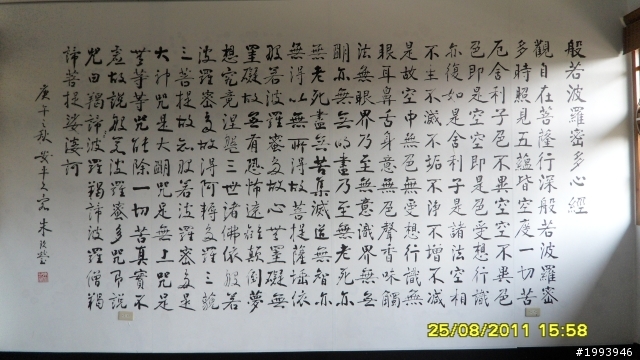 般若波羅密多心經
觀自在菩薩行深般若波羅密
多時照見五蘊皆空度一切苦
厄舍利子色不異空空不異色
色即是空空即是色受想行識
亦復如是舍利子是諸法空相
不生不滅不垢不淨不增不減
是故空中無色無受想行識無
眼耳鼻舌身意無色聲香味觸
法無眼界乃至無意識界無無
明亦無無明盡乃至無老死亦
無老死盡無苦集滅道無智亦
無得以無所得故菩提薩埵依
般若波羅密多故心無罣礙無
罣礙故無有恐怖遠離顛倒夢
想究竟涅盤三世諸佛依般若
波羅密多故得阿耨多羅三藐
三菩提故知般若波羅密多是
大神咒是大明咒是無上咒是
無等等咒能除一切苦真實不
虛故說般若波羅密多咒即說
咒曰揭諦波羅揭諦波羅僧揭
諦菩提娑婆訶
庚午之秋
25/08/2011 15:58
#1993946